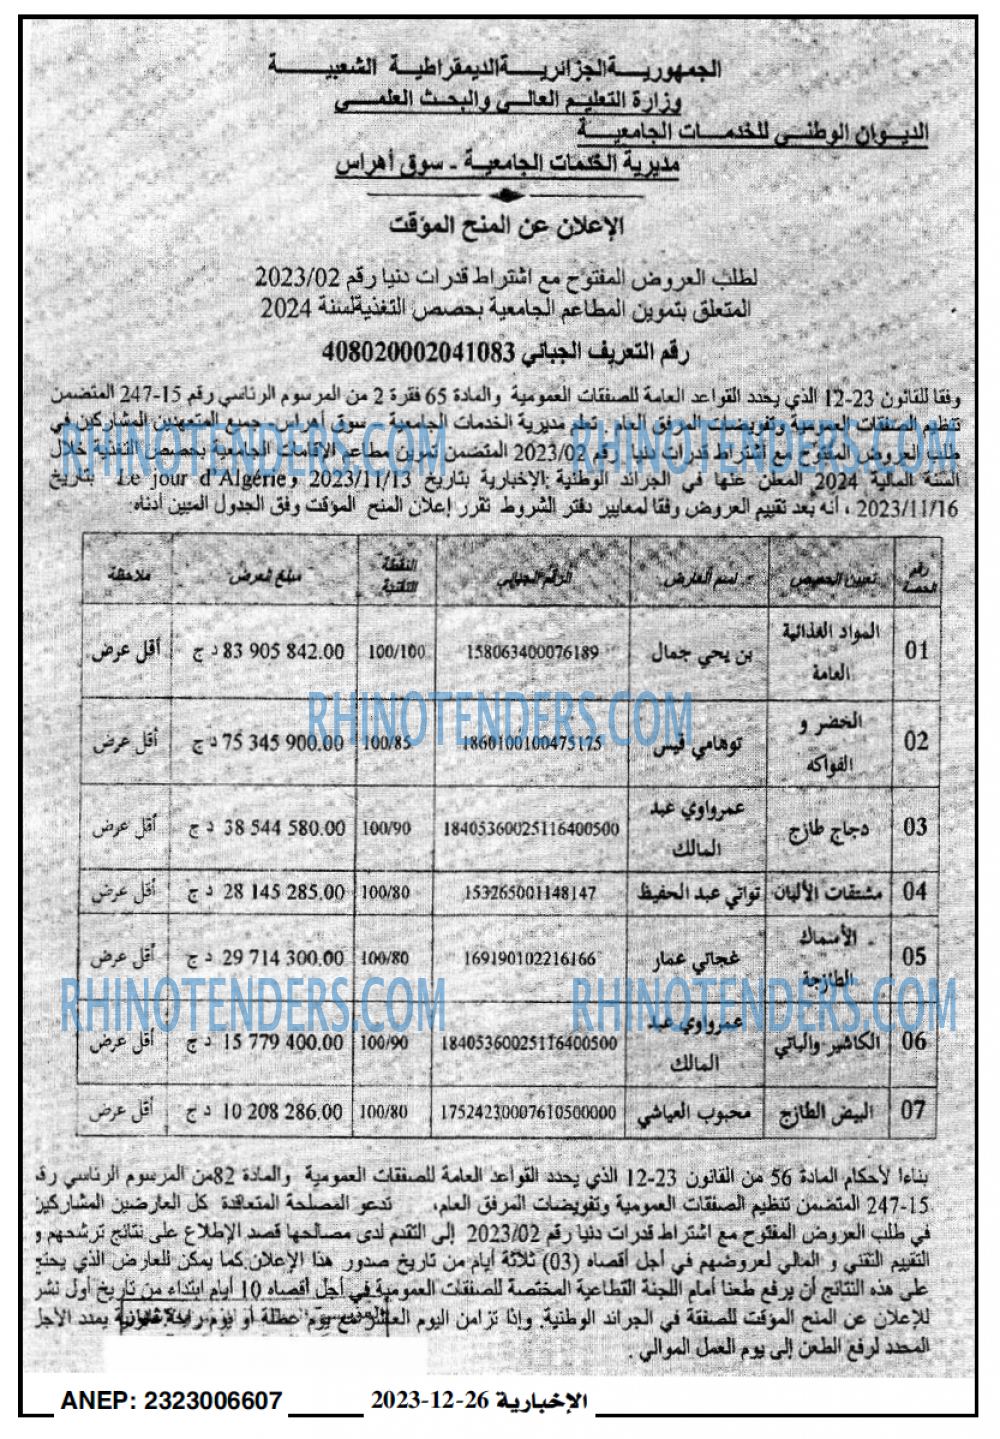 الجمهوريـــة الجزائريـــة الديمقراطيـة الشعبيـــة
وزارة التعليم العالي والبحث العلمي
الديوان الوطني للخدمات الجامعية
مديرية الخدمات الجامعية - سوق أهراس
الإعلان عن المنح المؤقت
لطلب العروض المفتوح مع اشتراط قدرات دنيا رقم 2023/02
المتعلق بتموين المطاعم الجامعية بحصص التغذية لسنة 2024
رقم التعريف الجبائي 408020002041083
وفقا للقانون 23-12 الذي يحدد القواعد العامة للصفقات العمومية والمادة 65 فقرة 2 من المرسوم الرئاسي رقم 15-247 المتضمن
تنظيم الصفقات العمومية وتفويضات المرفق العام، تعلم مديرية الخدمات الجامعية - سوق أهراس- جميع المتعهدين المشاركين في
طلب العروض المفتوح مع اشتراط قدرات دنيا رقم 2023/02 المتضمن تموين مطاعم الإقامات الجامعية بحصص التغذية خلال
السنة المالية 2024 المعلن عنها في الجرائد الوطنية الإخبارية بتاريخ 2023/11/13 و Le jour d'Algérie بتاريخ
2023/11/16 ، أنه بعد تقييم العروض وفقا لمعايير دفتر الشروط تقرر إعلان المنح المؤقت وفق الجدول المبين أدناه:
رقم الحصة | تعيين الحصص | اسم العارض | الرقم الجبائي | النقطة التقنية | مبلغ العرض | ملاحظة
01 | المواد الغذائية العامة | بن يحي جمال | 158063400076189 | 100/100 | 83 905 842.00 د ج | أقل عرض
02 | الخضر و الفواكه | توهامي قيس | 1860100100475175 | 100/85 | 75 345 900.00 د ج | أقل عرض
03 | دجاج طازج | عمرواوي عبد المالك | 18405360025116400500 | 100/90 | 38 544 580.00 د ج | أقل عرض
04 | مشتقات الألبان | تواتي عبد الحفيظ | 153265001148147 | 100/80 | 28 145 285.00 د ج | أقل عرض
05 | الأسماك الطازجة | غجاتي عمار | 169190102216166 | 100/80 | 29 714 300.00 د ج | أقل عرض
06 | الكاشير والباتي | عمرواوي عبد المالك | 18405360025116400500 | 100/90 | 15 779 400.00 د ج | أقل عرض
07 | البيض الطازج | محبوب العياشي | 17524230007610500000 | 100/80 | 10 208 286.00 د ج | أقل عرض
بناءا لأحكام المادة 56 من القانون 23-12 الذي يحدد القواعد العامة للصفقات العمومية والمادة 82من المرسوم الرئاسي رقم
15-247 المتضمن تنظيم الصفقات العمومية وتفويضات المرفق العام، تدعو المصلحة المتعاقدة كل العارضين المشاركين
في طلب العروض المفتوح مع اشتراط قدرات دنيا رقم 2023/02 إلى التقدم لدى مصالحها قصد الإطلاع على نتائج ترشحهم و
التقييم التقني و المالي لعروضهم في أجل أقصاه (03) ثلاثة أيام من تاريخ صدور هذا الإعلان.كما يمكن للعارض الذي يحتج
على هذه النتائج أن يرفع طعنا أمام اللجنة القطاعية المختصة للصفقات العمومية في أجل أقصاه 10 أيام ابتداء من تاريخ أول نشر
للإعلان عن المنح المؤقت للصفقة في الجرائد الوطنية. وإذا تزامن اليوم العاشر مع يوم عطلة أو يوم راحة قانونية يمدد الأجل
المحدد لرفع الطعن إلى يوم العمل الموالي .
RHINOTENDERS.COM
RHINOTENDERS.COM
RHINOTENDERS.COM
RHINOTENDERS.COM
RHINOTENDERS.COM
ANEP: 2323006607
الإخبارية 26-12-2023